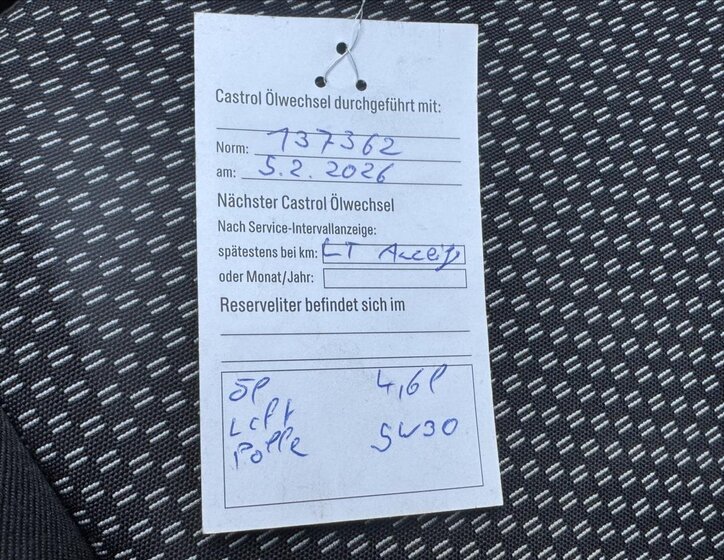 Castrol Ölwechsel durchgeführt mit:
Norm: 137362
am: 5.2.2026
Nächster Castrol Ölwechsel
Nach Service-Intervallanzeige:
spätestens bei km: LT Anzeig
oder Monat/Jahr:
Reserveliter befindet sich im
Öl 4,6l
Luft 5W30
Polle